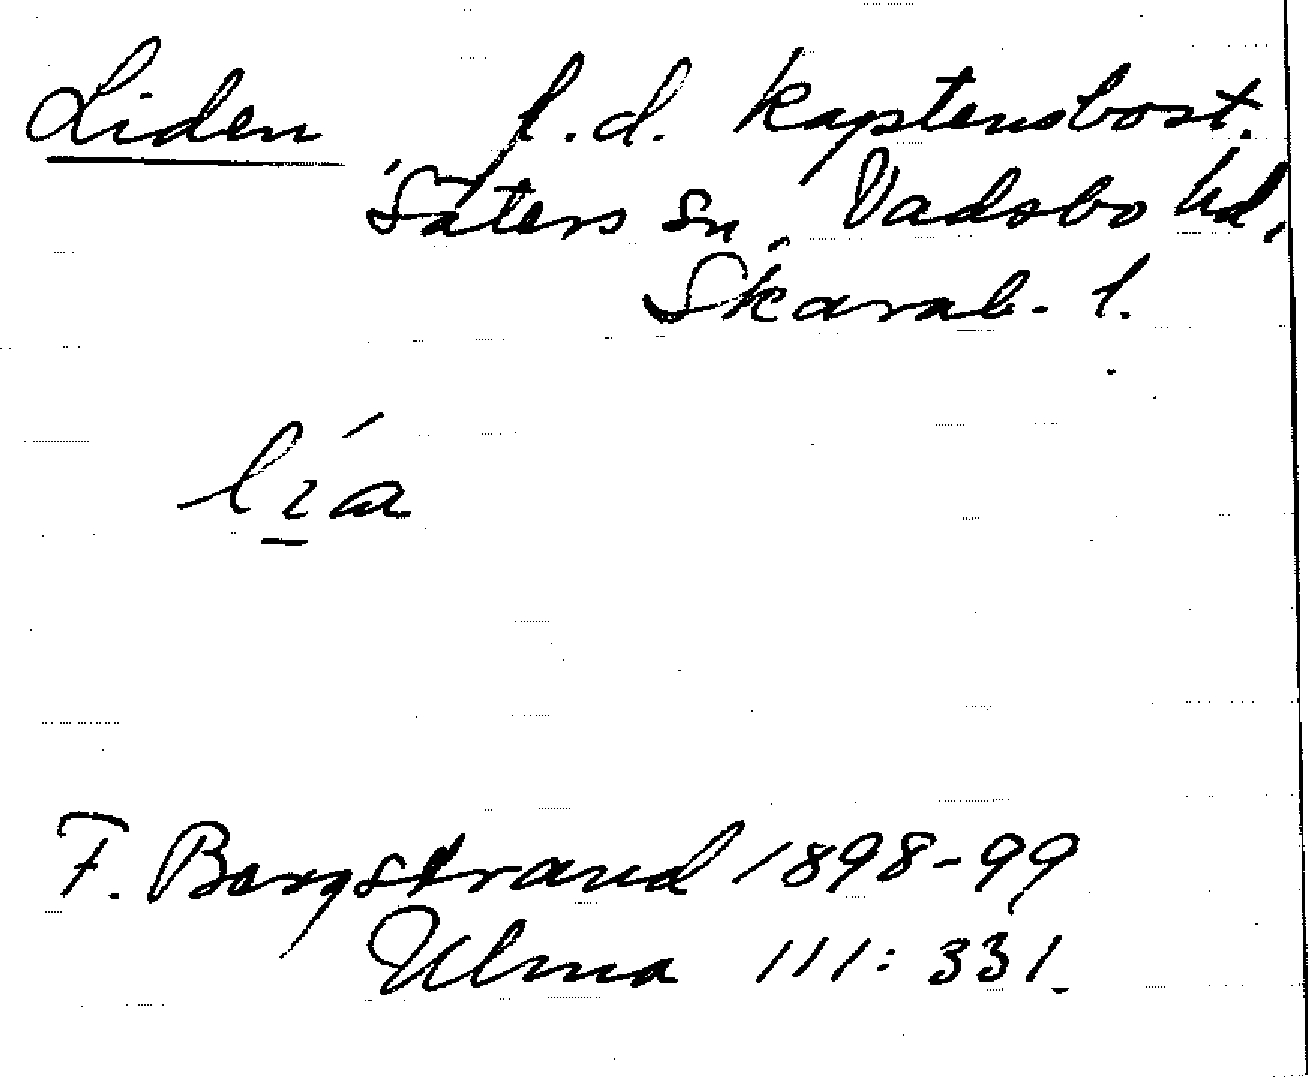 Liden f.d. kaptensbost.
Säters sn, Vadsbo hd,
Skarab. l.
F. Bergstrand 1898-99
Ulma 111:331.